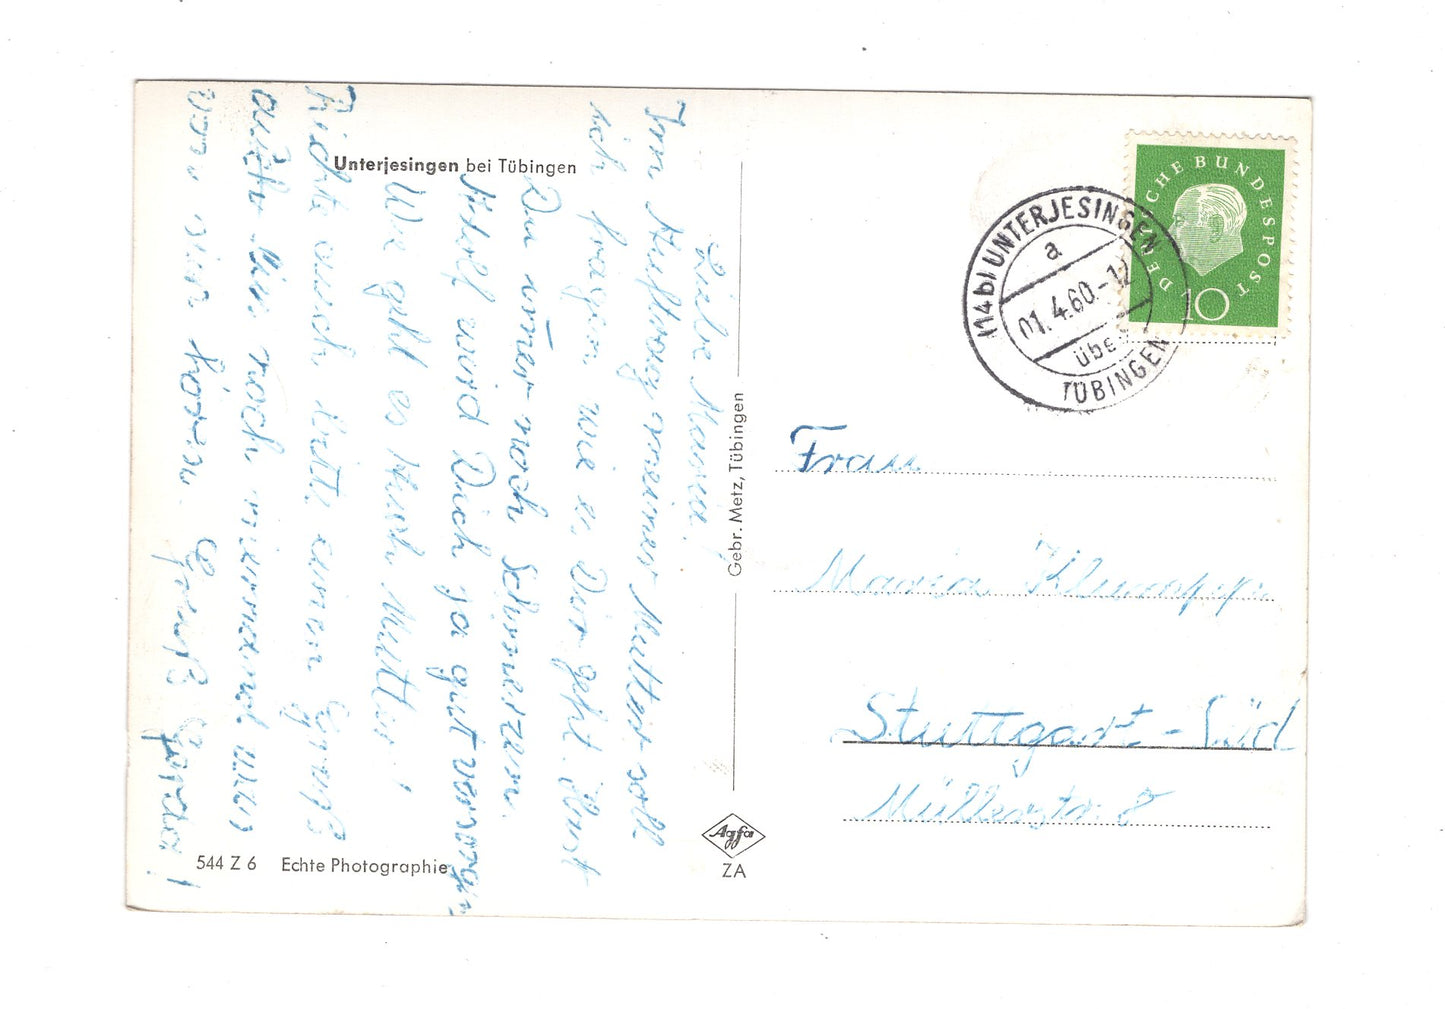 Unterjesingen bei Tübingen
Liebe Maria!
Im Auftrag meiner Mutter soll
ich fragen wie es Dir geht. Hast
Du immer noch Schmerzen.
Adolf wird Dich ja gut versorgen
Wie geht es Mutter!
Richte auch bitte einen Gruß
aus. noch niemand
von hören. Gruß
544 Z 6 Echte Photographie
Gebr. Metz, Tübingen
Agfa
ZA
DEUTSCHE BUNDESPOST
10
14b UNTERJESINGEN
a
01.4.60.-12
über
TÜBINGEN
Frau
Maria
Stuttgart-Süd
Müllerstr. 8